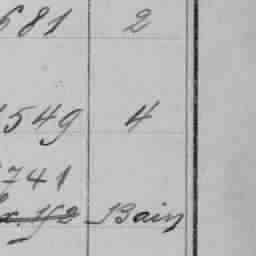 681 2
549 4
741
Bain